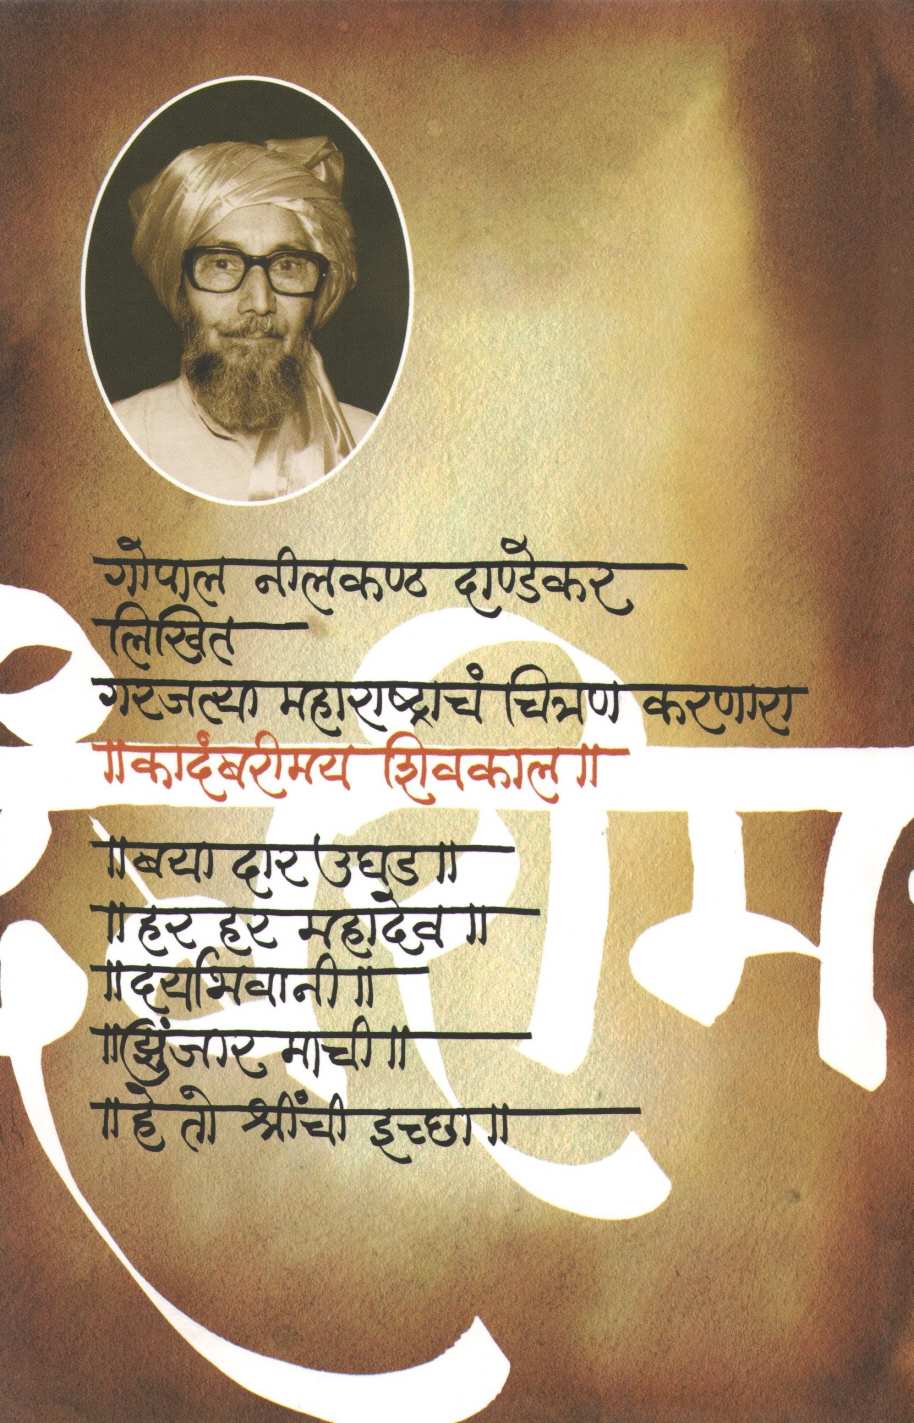 गोपाल नीलकण्ठ दाण्डेकर
लिखित
गरजत्या महाराष्ट्राचं चित्रण करणारा
॥कादंबरीमय शिवकाल॥
॥बया दार उघड॥
॥हर हर महादेव॥
॥दर्याभवानी॥
॥झुंजार माची॥
॥हे तो श्रींची इच्छा॥